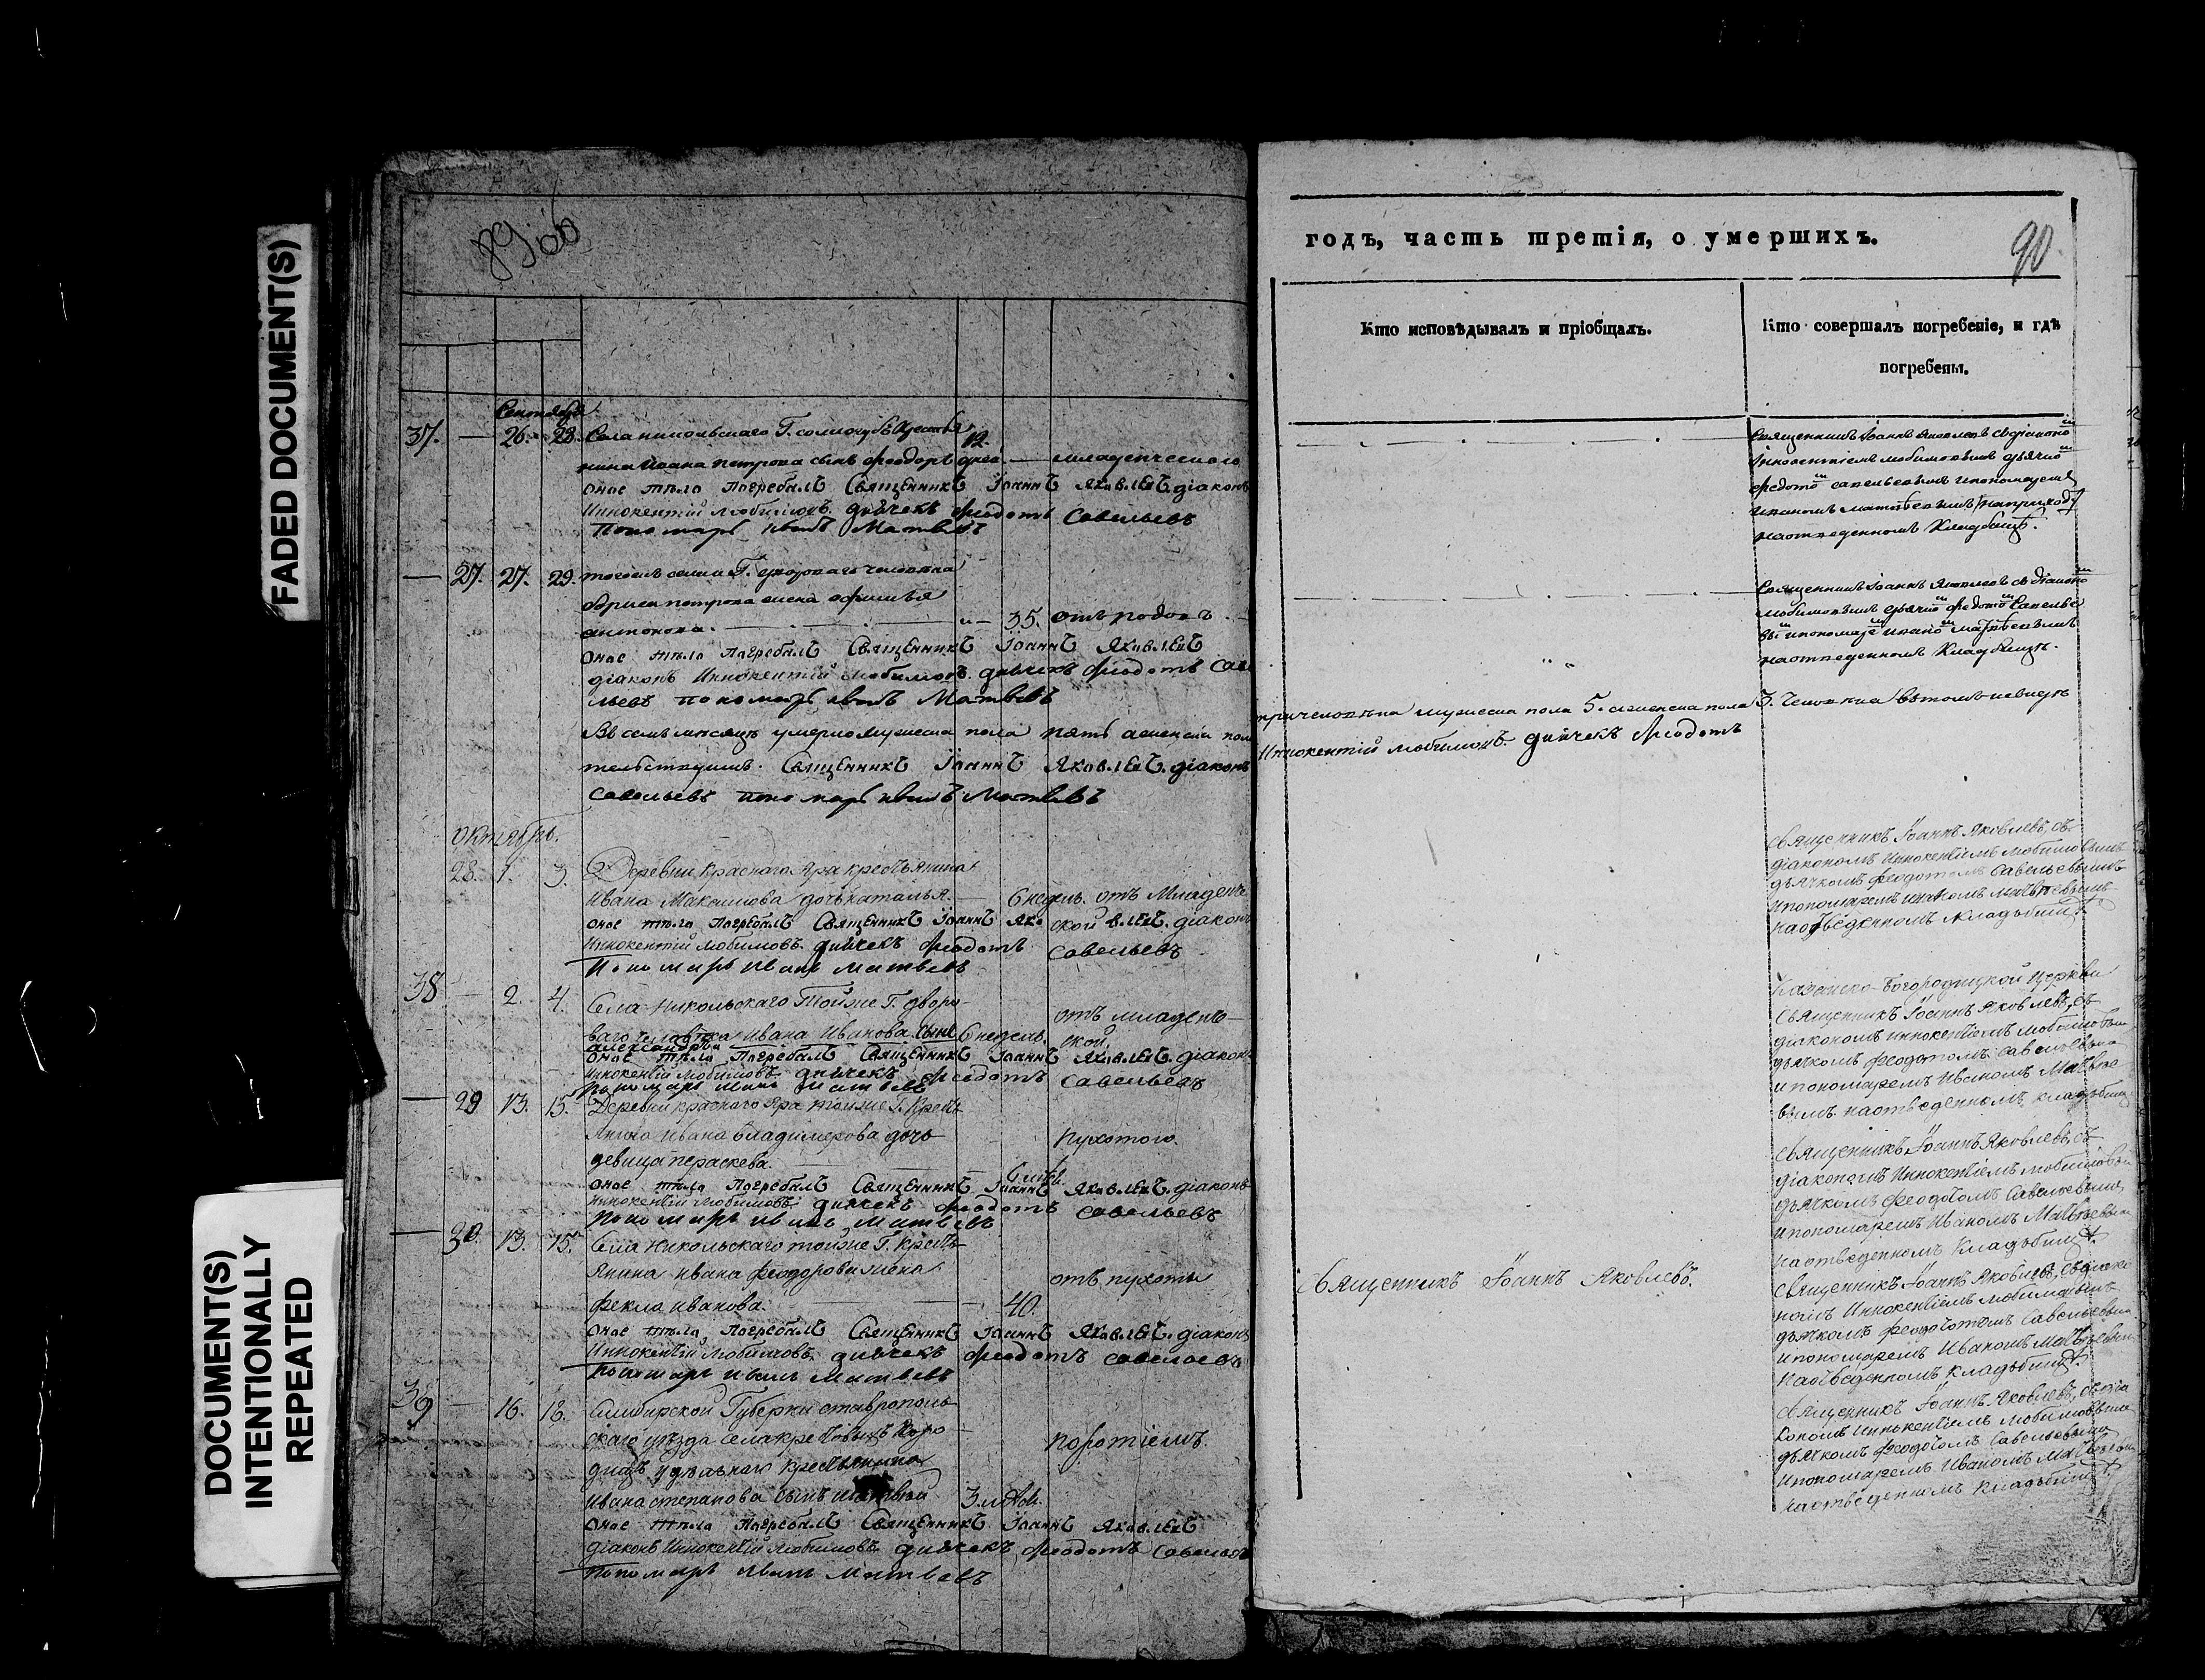 FADED DOCUMENT(S)
DOCUMENT(S)
INTENTIONALLY
REPEATED
89 об
годъ, часть третія, о умершихъ.
90.
Кто исповѣдывалъ и пріобщалъ.
Кто совершалъ погребеніе, и гдѣ
погребены.
Сентябрь
37. — 26. 28. Села никольскаго Г.
нина Ивана петрова сынъ феодоръ 12. дней — младенческаго
оное тѣло погребалъ Священникъ Іоаннъ Яковлевъ. діаконъ
Иннокентій Любимовъ. дьячекъ феодотъ Савельевъ
пономарь иванъ Матвѣевъ
Священникъ Іоаннъ Яковлевъ съ діакономъ
Иннокентіемъ любимовымъ дьячко
федото савельевымъ ипономаремъ
иваномъ матвѣевымъ
наотведенномъ Кладбищѣ.
— 27. 27. 29. тогожъ села Г. человѣка
петрова жена
антонова. — 35. отъ родовъ
оное тѣло погребалъ Священникъ Іоаннъ Яковлевъ
діаконъ Иннокентій Любимовъ. дьячекъ феодотъ Саве
льевъ пономарь иванъ Матвѣевъ
Священникъ Іоаннъ Яковлевъ съ діаконо
любимовымъ дьячко федото Савелье
вы ипономаре ивано матвѣевымъ
наотведенномъ Кладбищѣ.
Въ семъ мѣсяцѣ умерло мужеска пола пять аженска пола
мужеска пола 5. аженска пола 3. Человѣка
тельствуемъ. Священникъ Іоаннъ Яковлевъ. діаконъ
Иннокентій Любимовъ. дьячекъ Феодотъ
Савельевъ пономарь иванъ Матвѣевъ
Октябрь.
28. 1. 3. Деревни Краснаго Яра крестьянина
Ивана Максимова дочь наталья. — 6 недѣль. отъ Младенче
ской
оное тѣло погребалъ Священникъ Іоаннъ Яковлевъ. діаконъ
Иннокентій Любимовъ. дьячекъ феодотъ Савельевъ
Пономарь Иванъ матвѣевъ
Священникъ Іоаннъ Яковлевъ, съ
діакономъ Иннокентіемъ Любимовымъ
дьячкомъ феодотомъ Савельевымъ
ипономаремъ иваномъ матвѣевымъ
наотведенномъ кладбищѣ.
38 — 2. 4. Села Никольскаго Тойже Г. дворо
ваго человѣка Ивана Иванова. сынъ 6 недѣль. отъ младен
ской.
александръ
оное тѣло погребалъ Священникъ Іоаннъ Яковлевъ. діаконъ
Иннокентій Любимовъ дьячекъ феодотъ Савельевъ
пономарь иванъ матвѣевъ
Казанско-Богородицкой Церкви
Священникъ Іоаннъ Яковлевъ, съ
діакономъ Иннокентіемъ Любимовым
дьячкомъ феодотомъ савельевым
ипономаремъ Иваномъ Матвѣе
вымъ. наотведенномъ, кладбищѣ
— 29 13. 15. Деревни краснаго Яра тойже Г. Кресть
янина Ивана владимерова дочь
девица параскева. 6 лѣтъ. пухотою.
оное тѣло погребалъ Священникъ Іоаннъ Яковлевъ. діаконъ
Иннокентій Любимовъ. дьячекъ феодотъ Савельевъ
пономарь иванъ матвѣевъ
Священникъ Іоаннъ Яковлевъ, съ
діакономъ Иннокентіемъ Любимовым
дьячкомъ феодотомъ Савельевым
ипономаремъ Иваномъ Матвѣевым
наотведенномъ Кладбищѣ.
— 30. 13. 15. Села Никольскаго тойже Г. кресть
янина Ивана феодорова жена
фекла иванова. — 40. отъ пухоты
оное тѣло погребалъ Священникъ Іоаннъ Яковлевъ. діаконъ
Иннокентій Любимовъ. дьячекъ феодотъ Савельевъ
пономарь иванъ матвѣевъ
Священникъ Іоаннъ Яковлевъ.
Священникъ Іоаннъ Яковлевъ, съ діако
номъ Иннокентіемъ Любимовымъ
дьячкомъ феодотомъ Савельевым
ипономаремъ Иваномъ Матвѣевым
наотведенномъ Кладбищѣ.
39. — 16. 18. Симбирской Губерни ставрополь
скаго уѣзда села
удѣльнаго крестьянина
Ивана степанова сынъ 3. лѣтъ. поротіемъ.
оное тѣло погребалъ Священникъ Іоаннъ Яковлевъ
діаконъ Иннокентій Любимовъ. дьячекъ, феодотъ Савельев
пономарь иванъ матвѣевъ
Священникъ Іоаннъ Яковлевъ, съ діа
кономъ Иннокентіемъ Любимовым
дьячкомъ феодотомъ Савельевым
ипономаремъ Иваномъ Матвѣевы
наотведенномъ кладбищѣ.